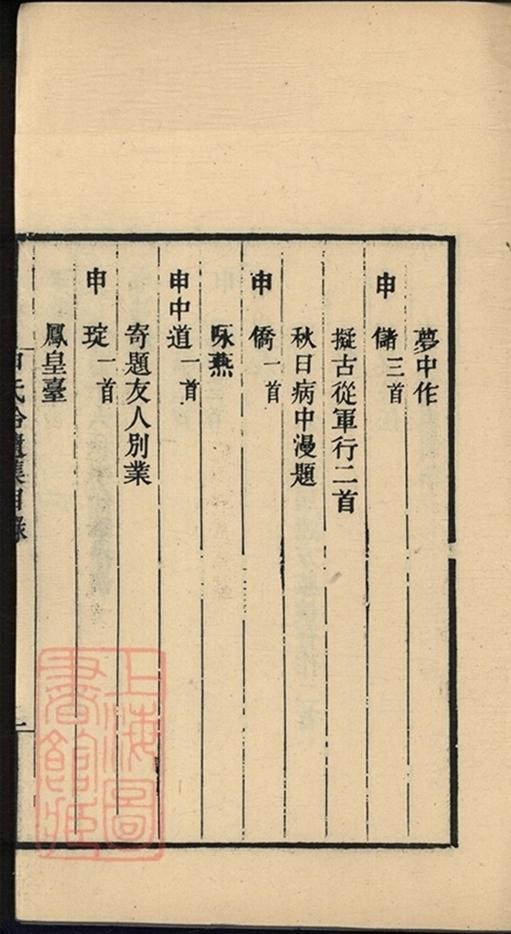 夢中作
申 儲三首
擬古從軍行二首
秋日病中漫題
申 僑一首
咏燕
申中道一首
寄題友人別業
申 琔一首
鳳皇臺
申氏拾遺集目錄
一
上海圖書館藏